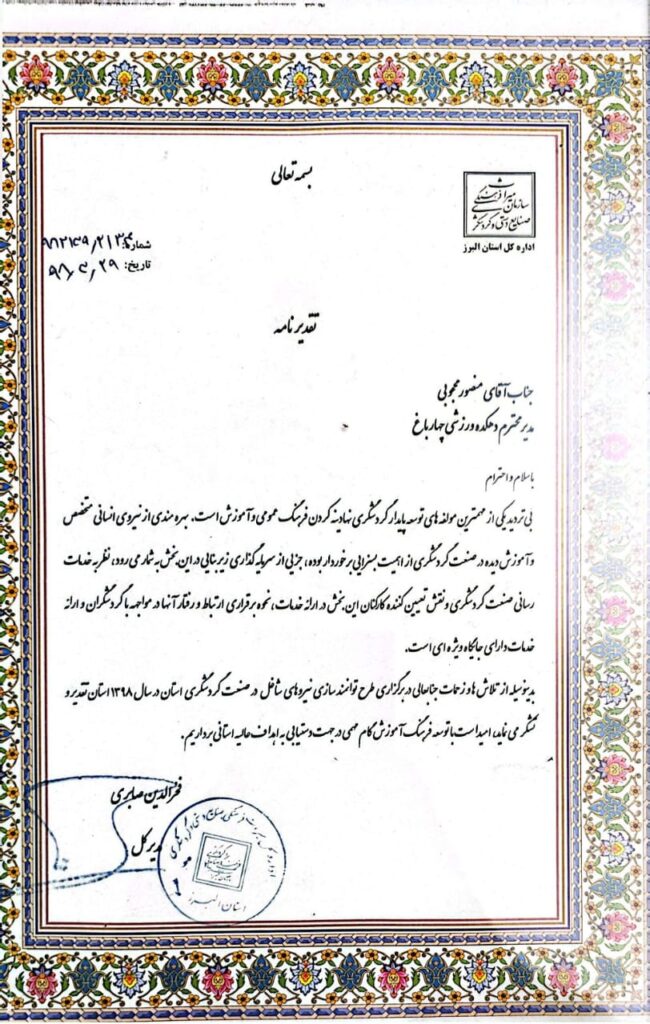 بسمه تعالی
سازمان میراث فرهنگی
صنایع دستی و گردشگری
اداره کل استان البرز
شماره:
تاریخ: ۹۸/۳/۲۹
تقدیر نامه
جناب آقای منصور محجوبی
مدیر محترم دهکده ورزشی چهارباغ
باسلام و احترام
بی تردید یکی از مهمترین مولفه های توسعه پایدار گردشگری نهادینه کردن فرهنگ عمومی و آموزش است. بهره مندی از نیروی انسانی متخصص
و آموزش دیده در صنعت گردشگری از اهمیت بسزایی برخوردار بوده، جزیی از سرمایه گذاری زیربنایی در این بخش به شمار می رود، نظر به خدمات
رسانی صنعت گردشگری و نقش تعیین کننده کارکنان این بخش در ارائه خدمات، نحوه برقراری ارتباط و رفتار آنها در مواجهه با گردشگران و ارائه
خدمات دارای جایگاه ویژه ای است.
بدینوسیله از تلاش ها و زحمات جنابعالی در برگزاری طرح توانمند سازی نیروهای شاغل در صنعت گردشگری استان در سال ۱۳۹۸ استان تقدیر و
تشکر می نماید، امید است با توسعه فرهنگ آموزش گام مهمی در جهت دستیابی به اهداف عالیه استانی برداریم.
فخرالدین صابری
مدیر کل
استان البرز